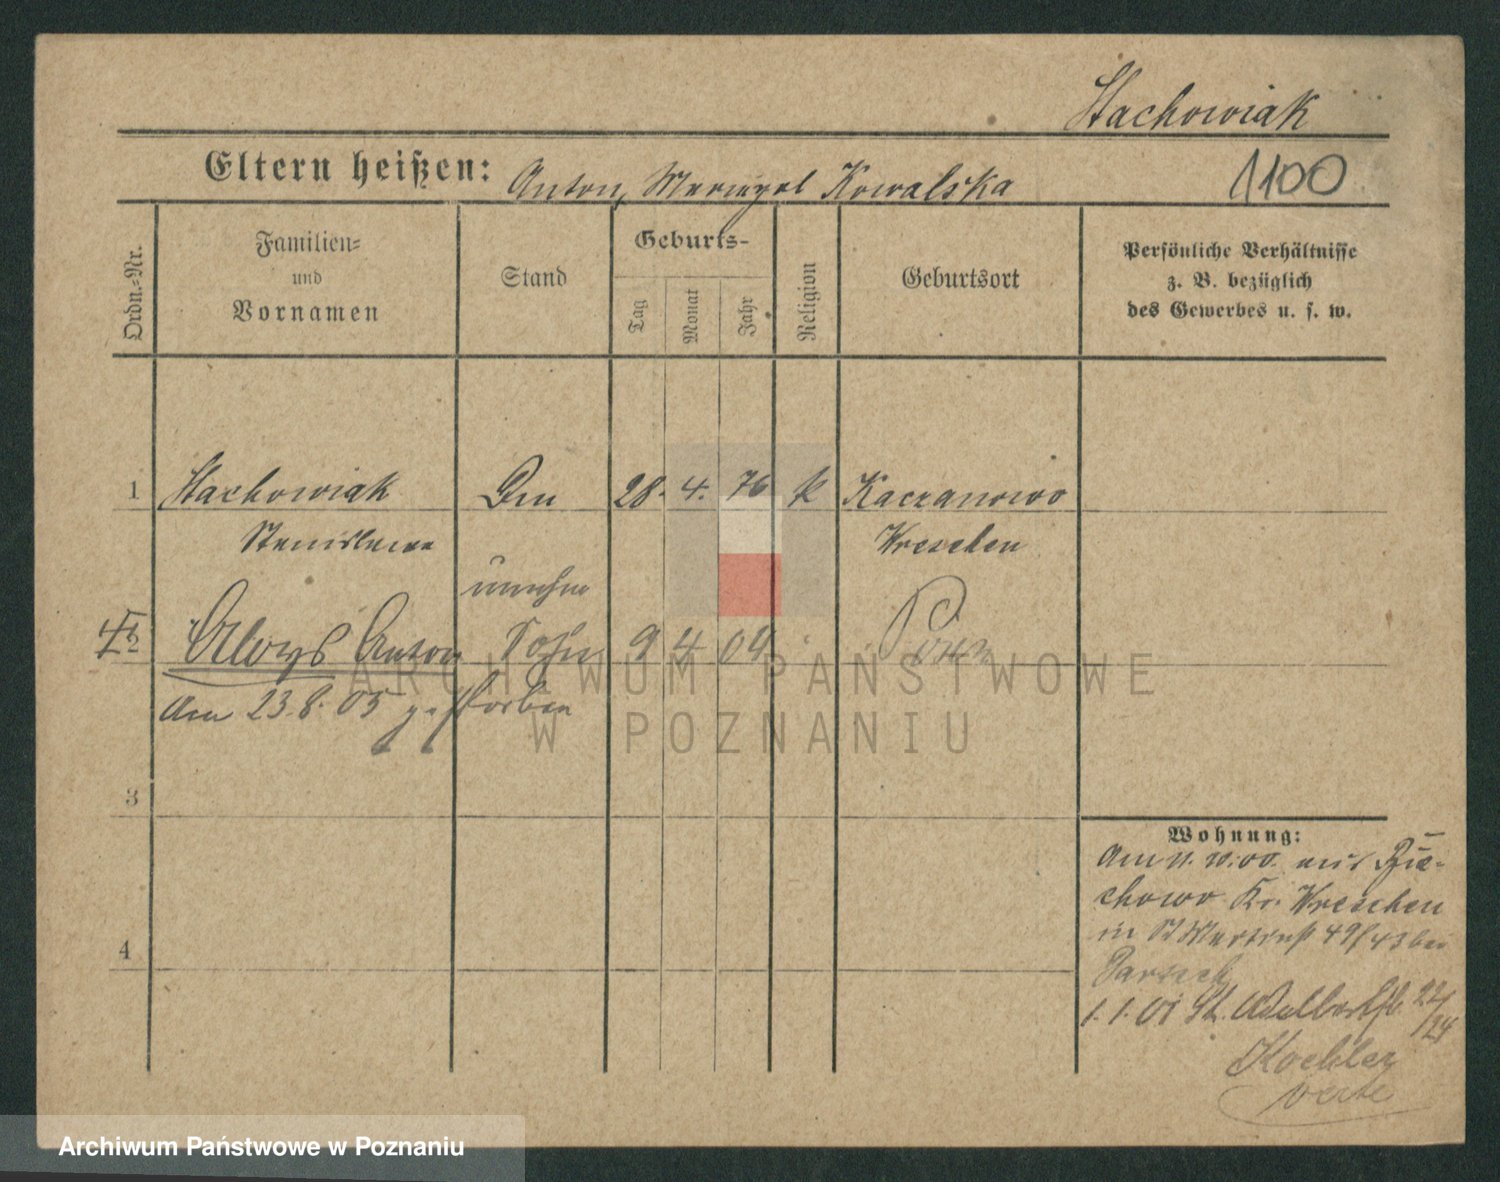 Stachowiak
Eltern heißen: Anton, Kowalska
1100
Ordn.-Nr.
Familien-
und
Vornamen
Stand
Geburts-
Tag
Monat
Jahr
Religion
Geburtsort
Persönliche Verhältnisse
z. B. bezüglich
des Gewerbes u. s. w.
1 Stachowiak 28. 4. 76 k Kaczanowo
Stanislawa Wreschen
unehe
2 Aloys Anton Sohn 9 4 04 Posen
Am 23.8.05 gestorben
3
4
Wohnung:
Am 11. 10. 00. aus
chowo Kr. Wreschen
in St Martinst 49/43 bei
1. 1. 01 St. Adalbertst. 22/24
Koehler
verte
ARCHIWUM PAŃSTWOWE
W POZNANIU
Archiwum Państwowe w Poznaniu